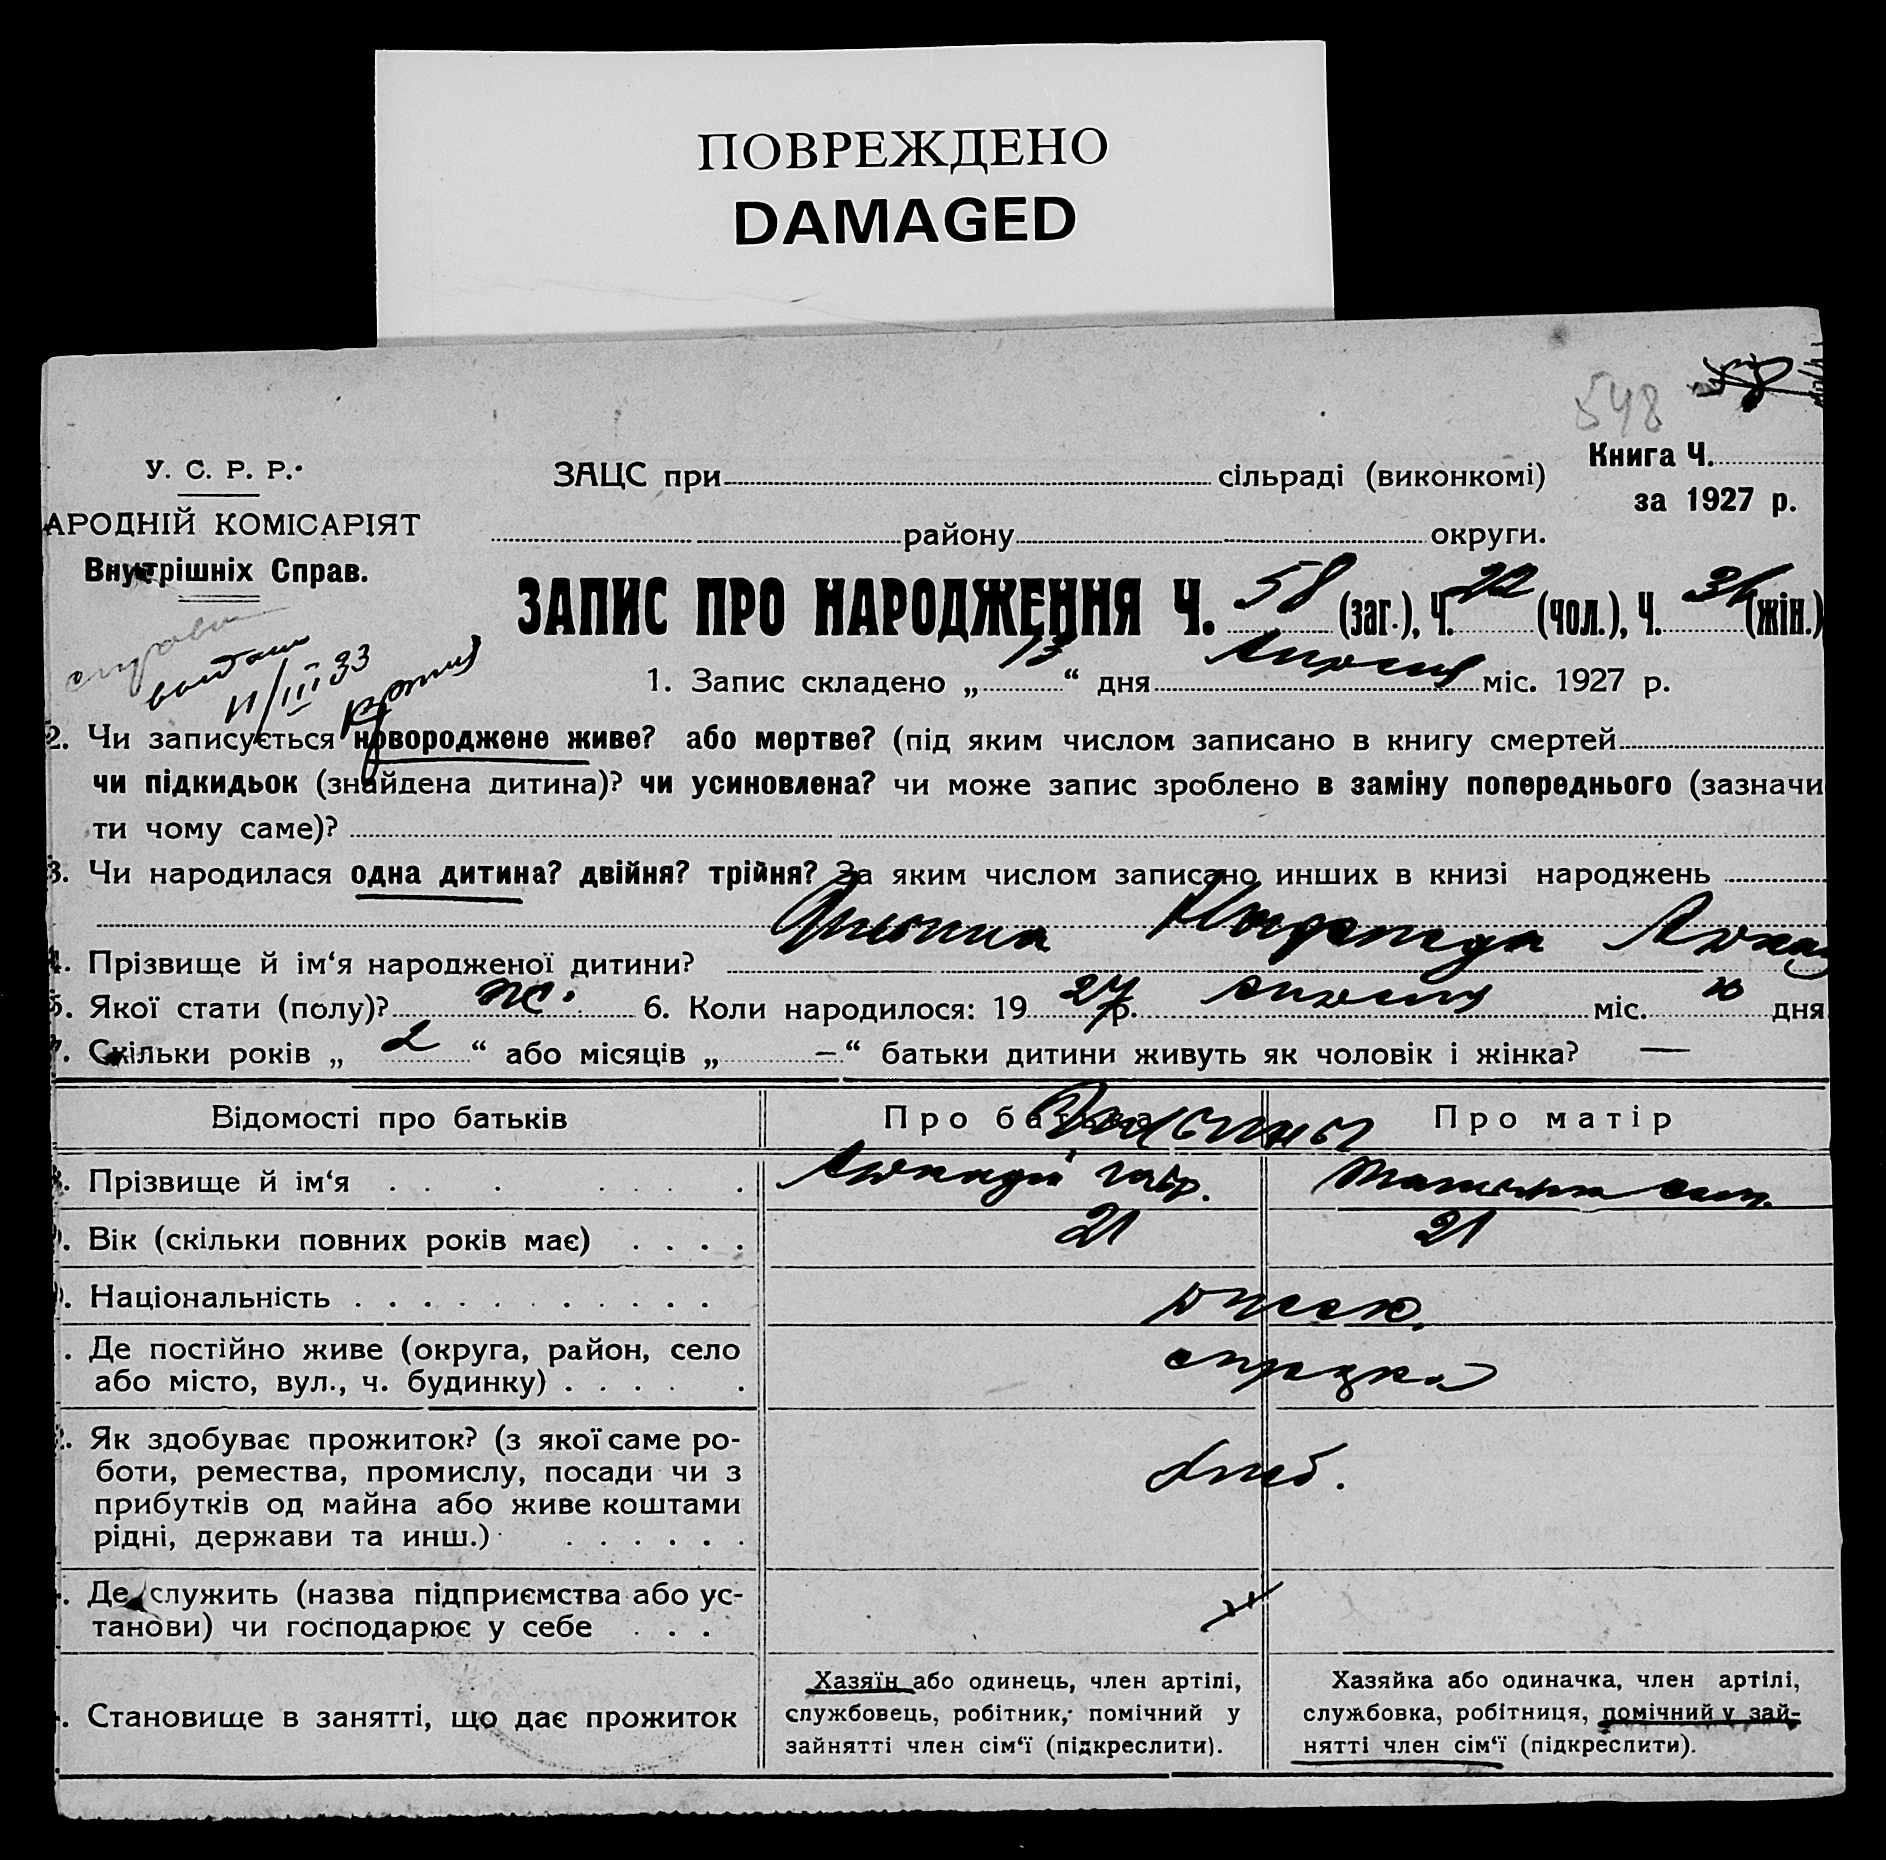 ПОВРЕЖДЕНО
DAMAGED
548
У. С. Р. Р.
ЗАЦС при сільраді (виконкомі)
Книга Ч.
за 1927 р.
АРОДНІЙ КОМІСАРІЯТ
району округи.
Внутрішніх Справ.
ЗАПИС ПРО НАРОДЖЕННЯ Ч. 58 (заг.), Ч. (чол.), Ч. (жін.)
11/III 33
1. Запис складено „13“ дня апреля міс. 1927 р.
2. Чи записується новороджене живе? або мертве? (під яким числом записано в книгу смертей
чи підкидьок (знайдена дитина)? чи усиновлена? чи може запис зроблено в заміну попереднього (зазначи
ти чому саме)?
3. Чи народилася одна дитина? двійня? трійня? За яким числом записано инших в книзі народжень
4. Прізвище й ім‘я народженої дитини?
5. Якої стати (полу)? ж. 6. Коли народилося: 1927 р. апреля міс. дня
7. Скільки років „2“ або місяців „–“ батьки дитини живуть як чоловік і жінка? —
Відомості про батьків Про батька Про матір
Прізвище й ім‘я
Вік (скільки повних років має) 21 21
Національність
Де постійно живе (округа, район, село
або місто, вул., ч. будинку)
Як здобуває прожиток? (з якої саме ро-
боти, ремества, промислу, посади чи з
прибутків од майна або живе коштами
рідні, держави та инш.) хлеб.
Де служить (назва підприємства або ус-
танови) чи господарює у себе
Становище в занятті, що дає прожиток
Хазяїн або одинець, член артілі,
службовець, робітник, помічний у
зайнятті член сім‘ї (підкреслити).
Хазяйка або одиначка, член артілі,
службовка, робітниця, помічний у зай-
нятті член сім‘ї (підкреслити).